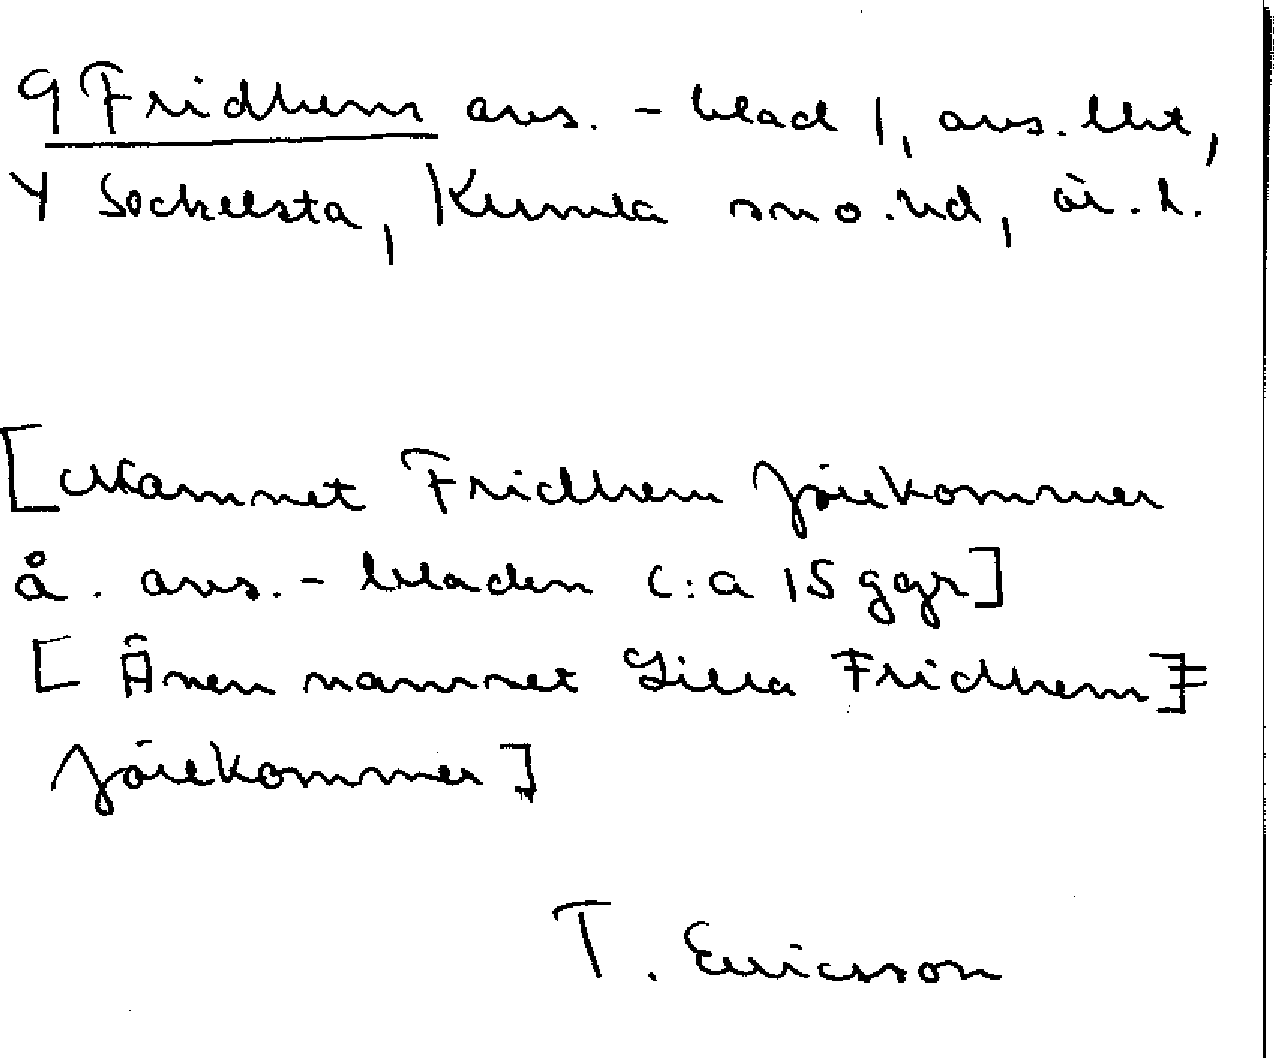 9 Fridhem avs. - blad 1, avs. lht,
Y Sockelsta, Kumla sn o. hd, Ör. l.
[Namnet Fridhem förekommer
å. avs. - bladen c:a 15 ggr]
[ Även namnet Lilla Fridhem]
förekommer]
T. Ericsson